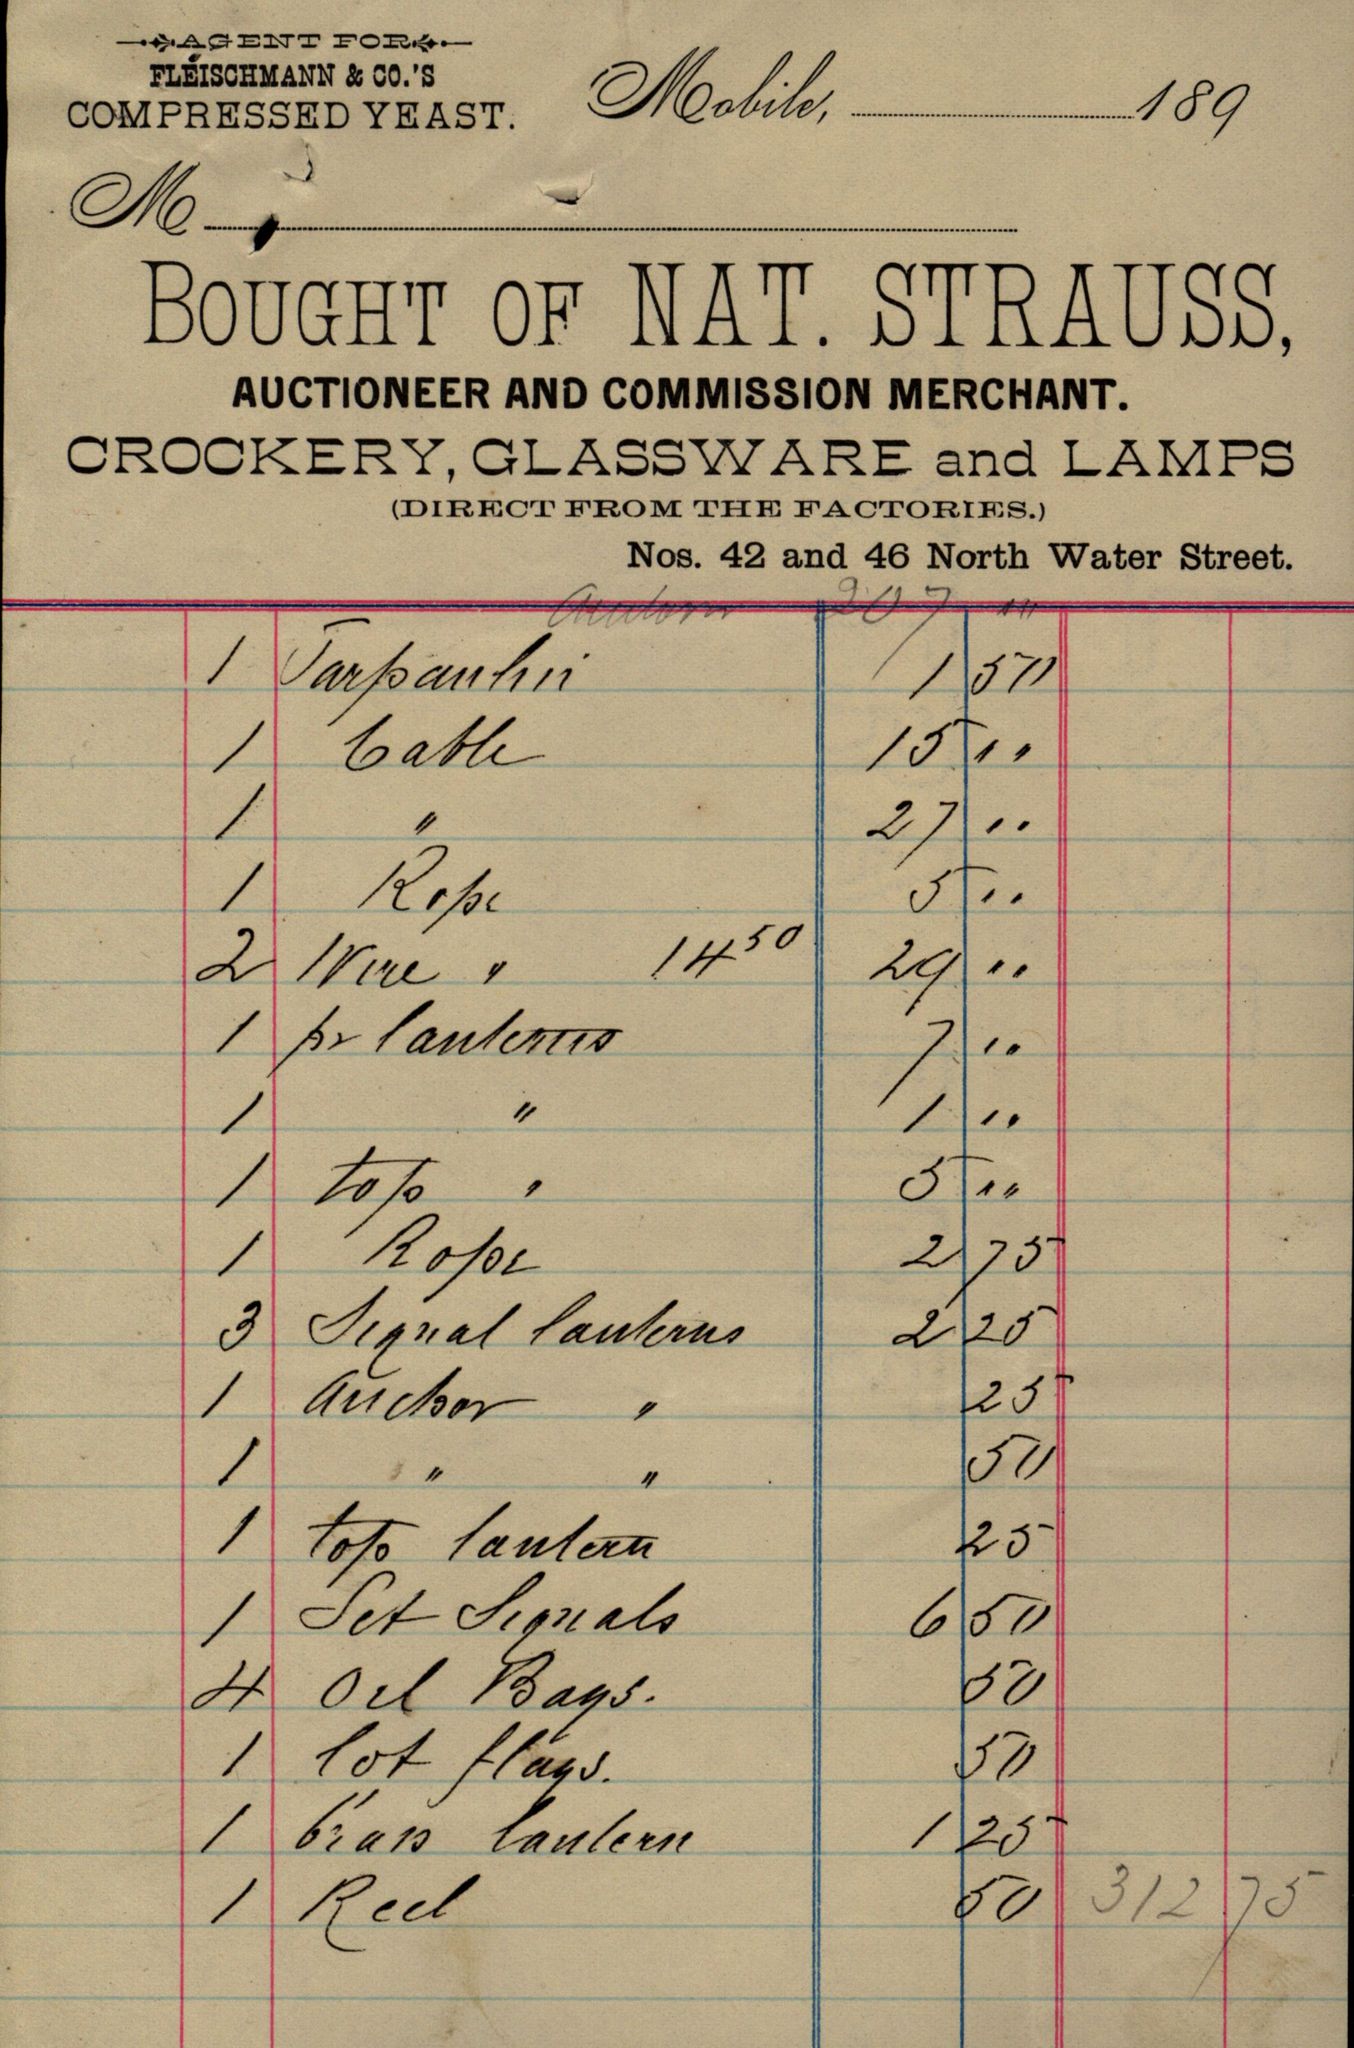 AGENT FOR
FLEISCHMANN & CO.'S
COMPRESSED YEAST.
Mobile, 189
M
BOUGHT OF NAT. STRAUSS,
AUCTIONEER AND COMMISSION MERCHANT.
CROCKERY, GLASSWARE and LAMPS
(DIRECT FROM THE FACTORIES.)
Nos. 42 and 46 North Water Street.
207 "
1 Tarpaulin 1 50
1 Cable 15 ""
1 " 27 ""
1 Rope 5 ""
2 Wire " 14 50 29 ""
1 pr lanterns 7 ""
1 " 1 ""
1 top " 5 ""
1 Rope 2 75
3 Signal lanterns 2 25
1 Anchor " 25
1 " " 50
1 top lantern 25
1 Set Signals 6 50
4 Oil Bags. 50
1 lot flags. 50
1 brass lantern 1 25
1 Reel 50 312 75